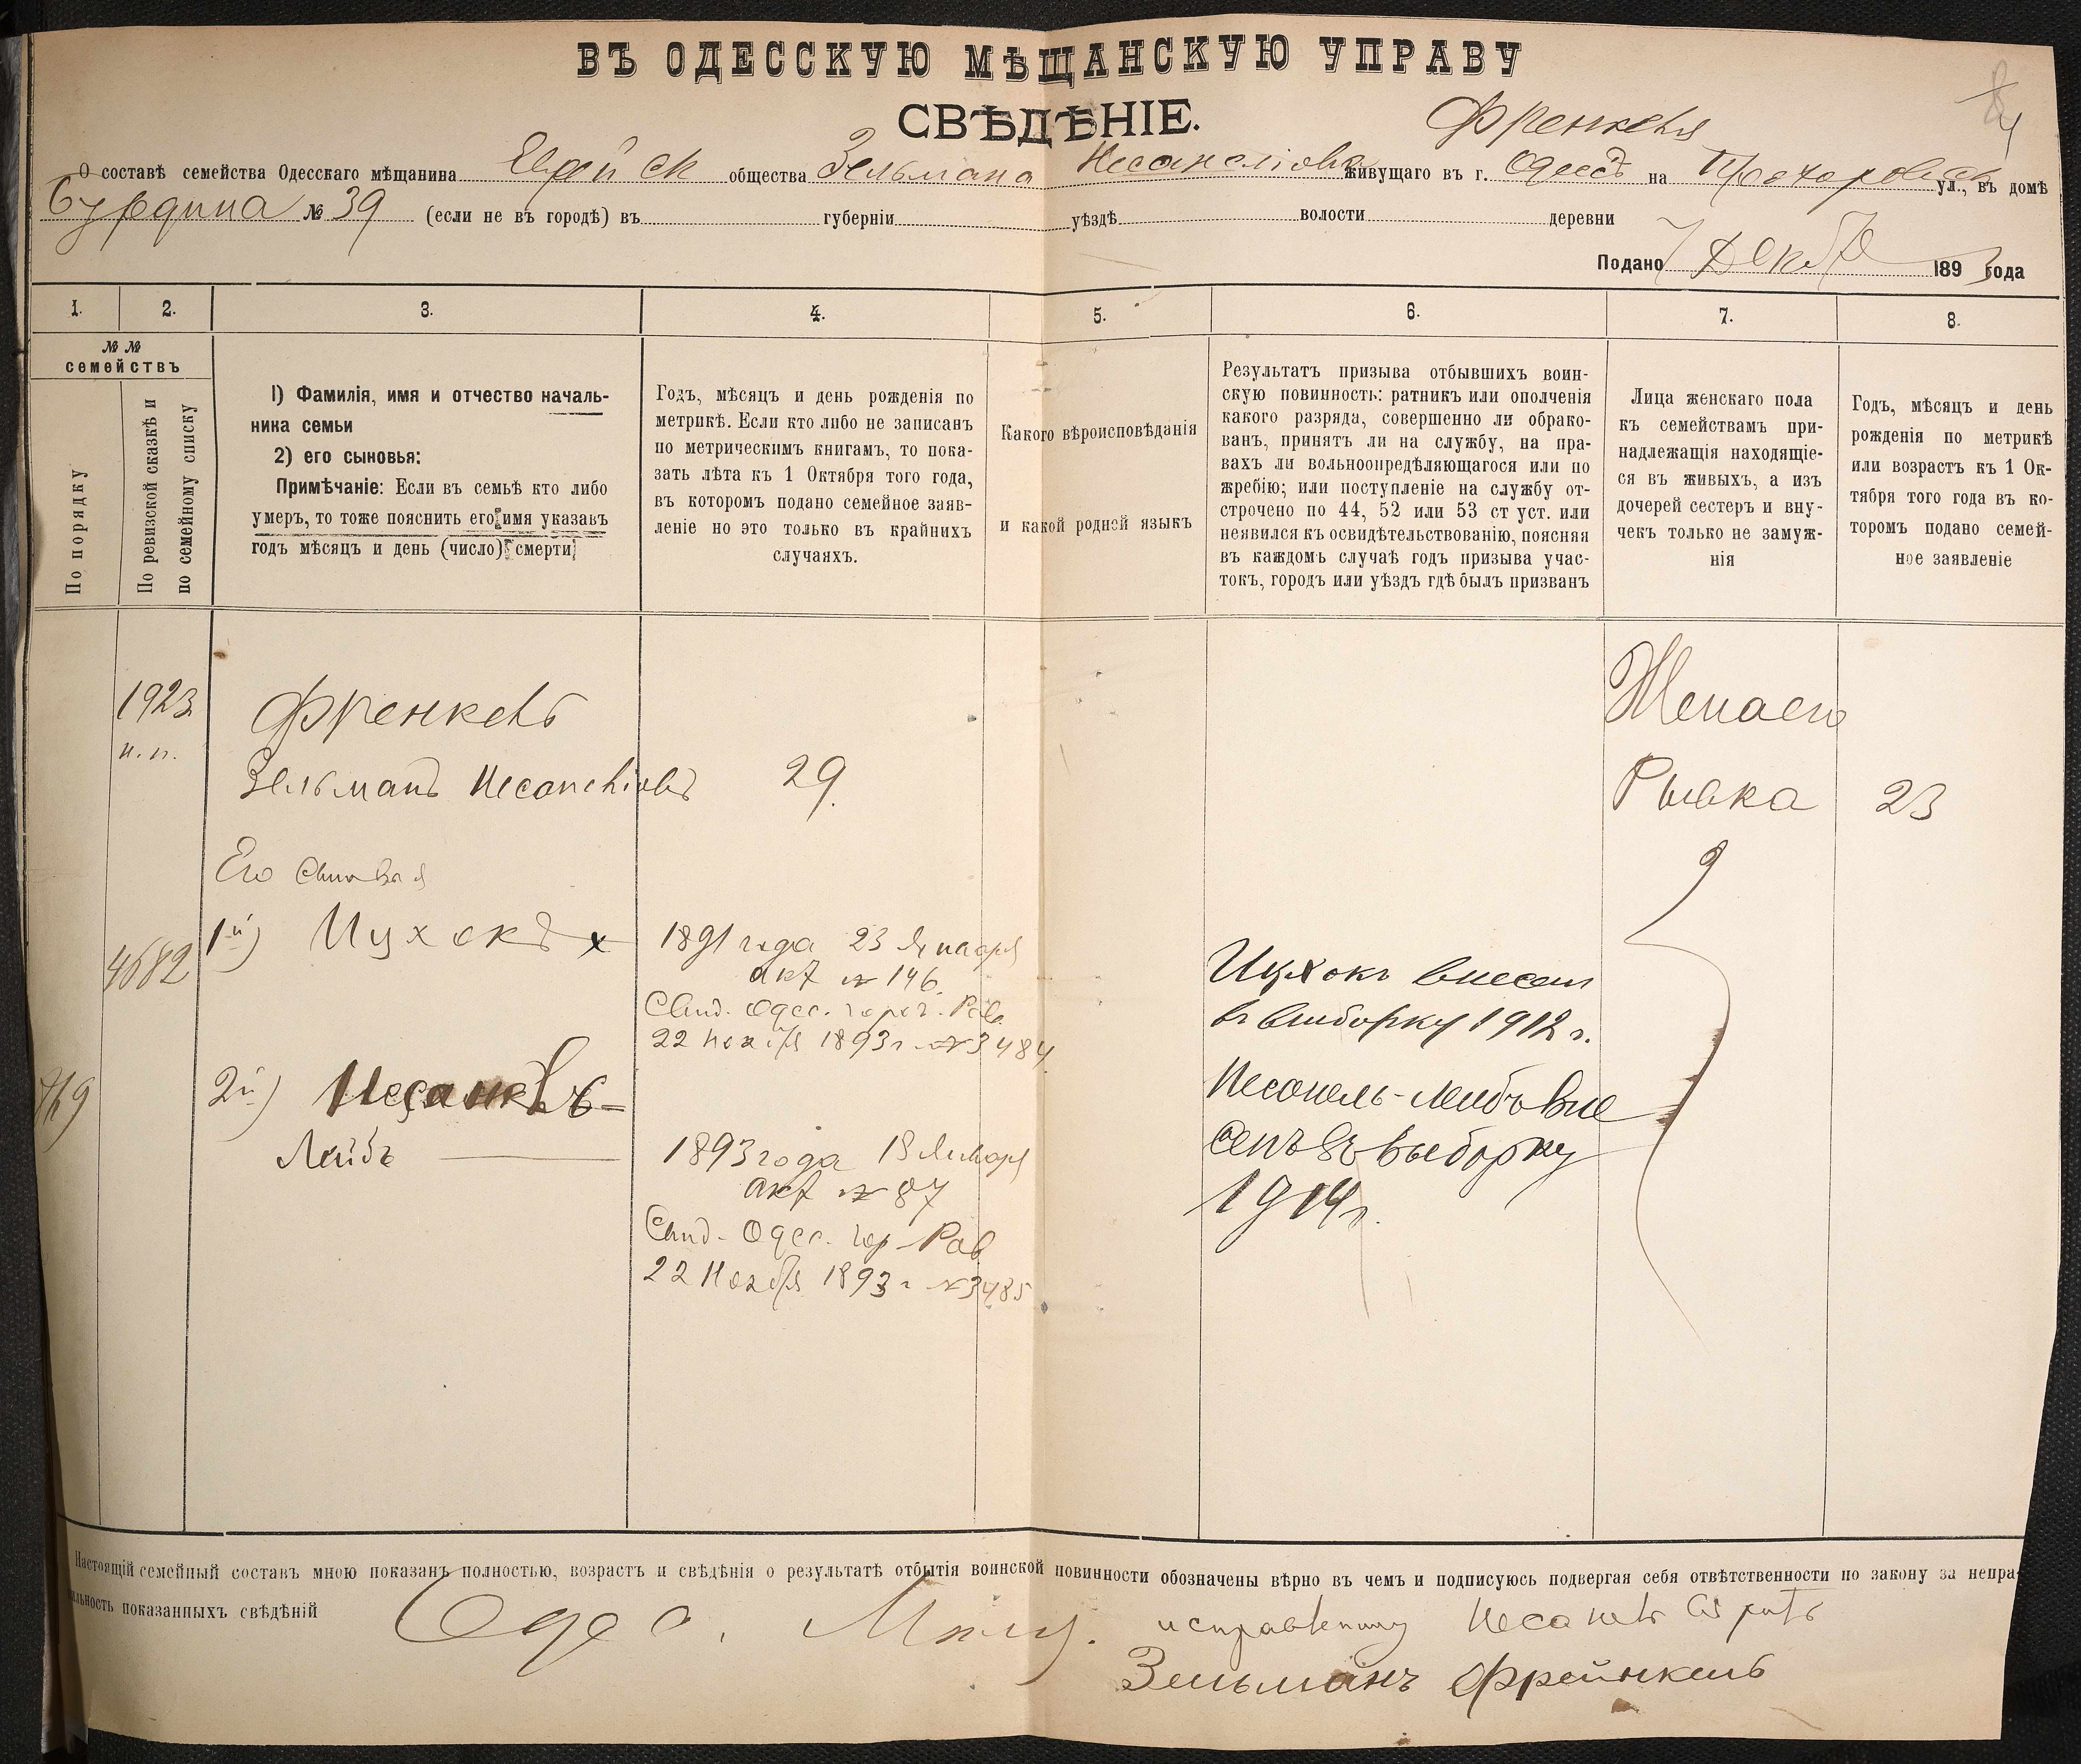 ВЪ ОДЕССКУЮ МѢЩАНСКУЮ УПРАВУ
СВѢДѢНІЕ.
Френкеля
О составѣ семейства Одесскаго мѣщанина Еврейск общества Зельмана Несанеліова живущаго въ г. Одессѣ на Прохоровск ул., въ домѣ
№ 39 (если не въ городѣ) въ губерніи уѣздѣ волости деревни
Подано 7 Декабр 1893 года
1. 2. 3. 4. 5. 6. 7. 8.
№ № семействъ
По порядку
По ревизской сказкѣ и по семейному списку
1) Фамилія, имя и отчество началь-
ника семьи
2) его сыновья:
Примѣчаніе: Если въ семьѣ кто либо
умеръ, то тоже пояснить его имя указавъ
годъ мѣсяцъ и день (число) смерти
Годъ, мѣсяцъ и день рожденія по
метрикѣ. Если кто либо не записанъ
по метрическим книгамъ, то пока-
зать лѣта къ 1 Октября того года,
въ котором подано семейное заяв-
леніе но это только въ крайнихъ
случаяхъ.
Какого вѣроисповѣданія
и какой родной языкъ
Результатъ призыва отбывшихъ воин-
скую повинность: ратникъ или ополченія
какого разряда, совершенно ли обрако-
ванъ, принятъ ли на службу, на пра-
вахъ ли вольноопредѣляющагося или по
жребію; или поступленіе на службу от-
строчено по 44, 52 или 53 ст уст. или
неявился къ освидѣтельствованію, поясняя
въ каждомъ случаѣ годъ призыва учас-
токъ, городъ или уѣздъ гдѣ былъ призванъ
Лица женскаго пола
къ семействамъ при-
надлежащія находящіе-
ся въ живыхъ, а изъ
дочерей сестеръ и вну-
чекъ только не замуж-
нія
Годъ, мѣсяцъ и день
рожденія по метрикѣ
или возрастъ къ 1 Ок-
тября того года въ ко-
торомъ подано семей-
ное заявленіе
1923
н. п.
Френкель
Зельманъ Несанеліовъ 29.
Жена его
Рывка 23
Его сыновья
4682
1й) Ицхокъ х
1891 года 23 Января
акт № 146.
Свид. Одес. город. Рав.
22 Ноября 1893 г № 3484
Ицхокъ внесен
въ выборку 1912 г.
769
2й) Несанель-
Лейбъ
1893 года 18 Января
акт № 87
Свид. Одес. гор. Рав
22 Ноября 1893 г № 3485
Несанель-Лейбъ вне
сенъ въ выборку
1914 г.
Настоящій семейный составъ мною показанъ полностью, возрастъ и свѣдѣнія о результатѣ отбытія воинской повинности обозначены вѣрно въ чемъ и подписуюсь подвергая себя отвѣтственности по закону за непра-
вильность показанныхъ свѣдѣній
Одес. Мѣщ. исправленному Несанель вѣрить
Зельманъ Френкель